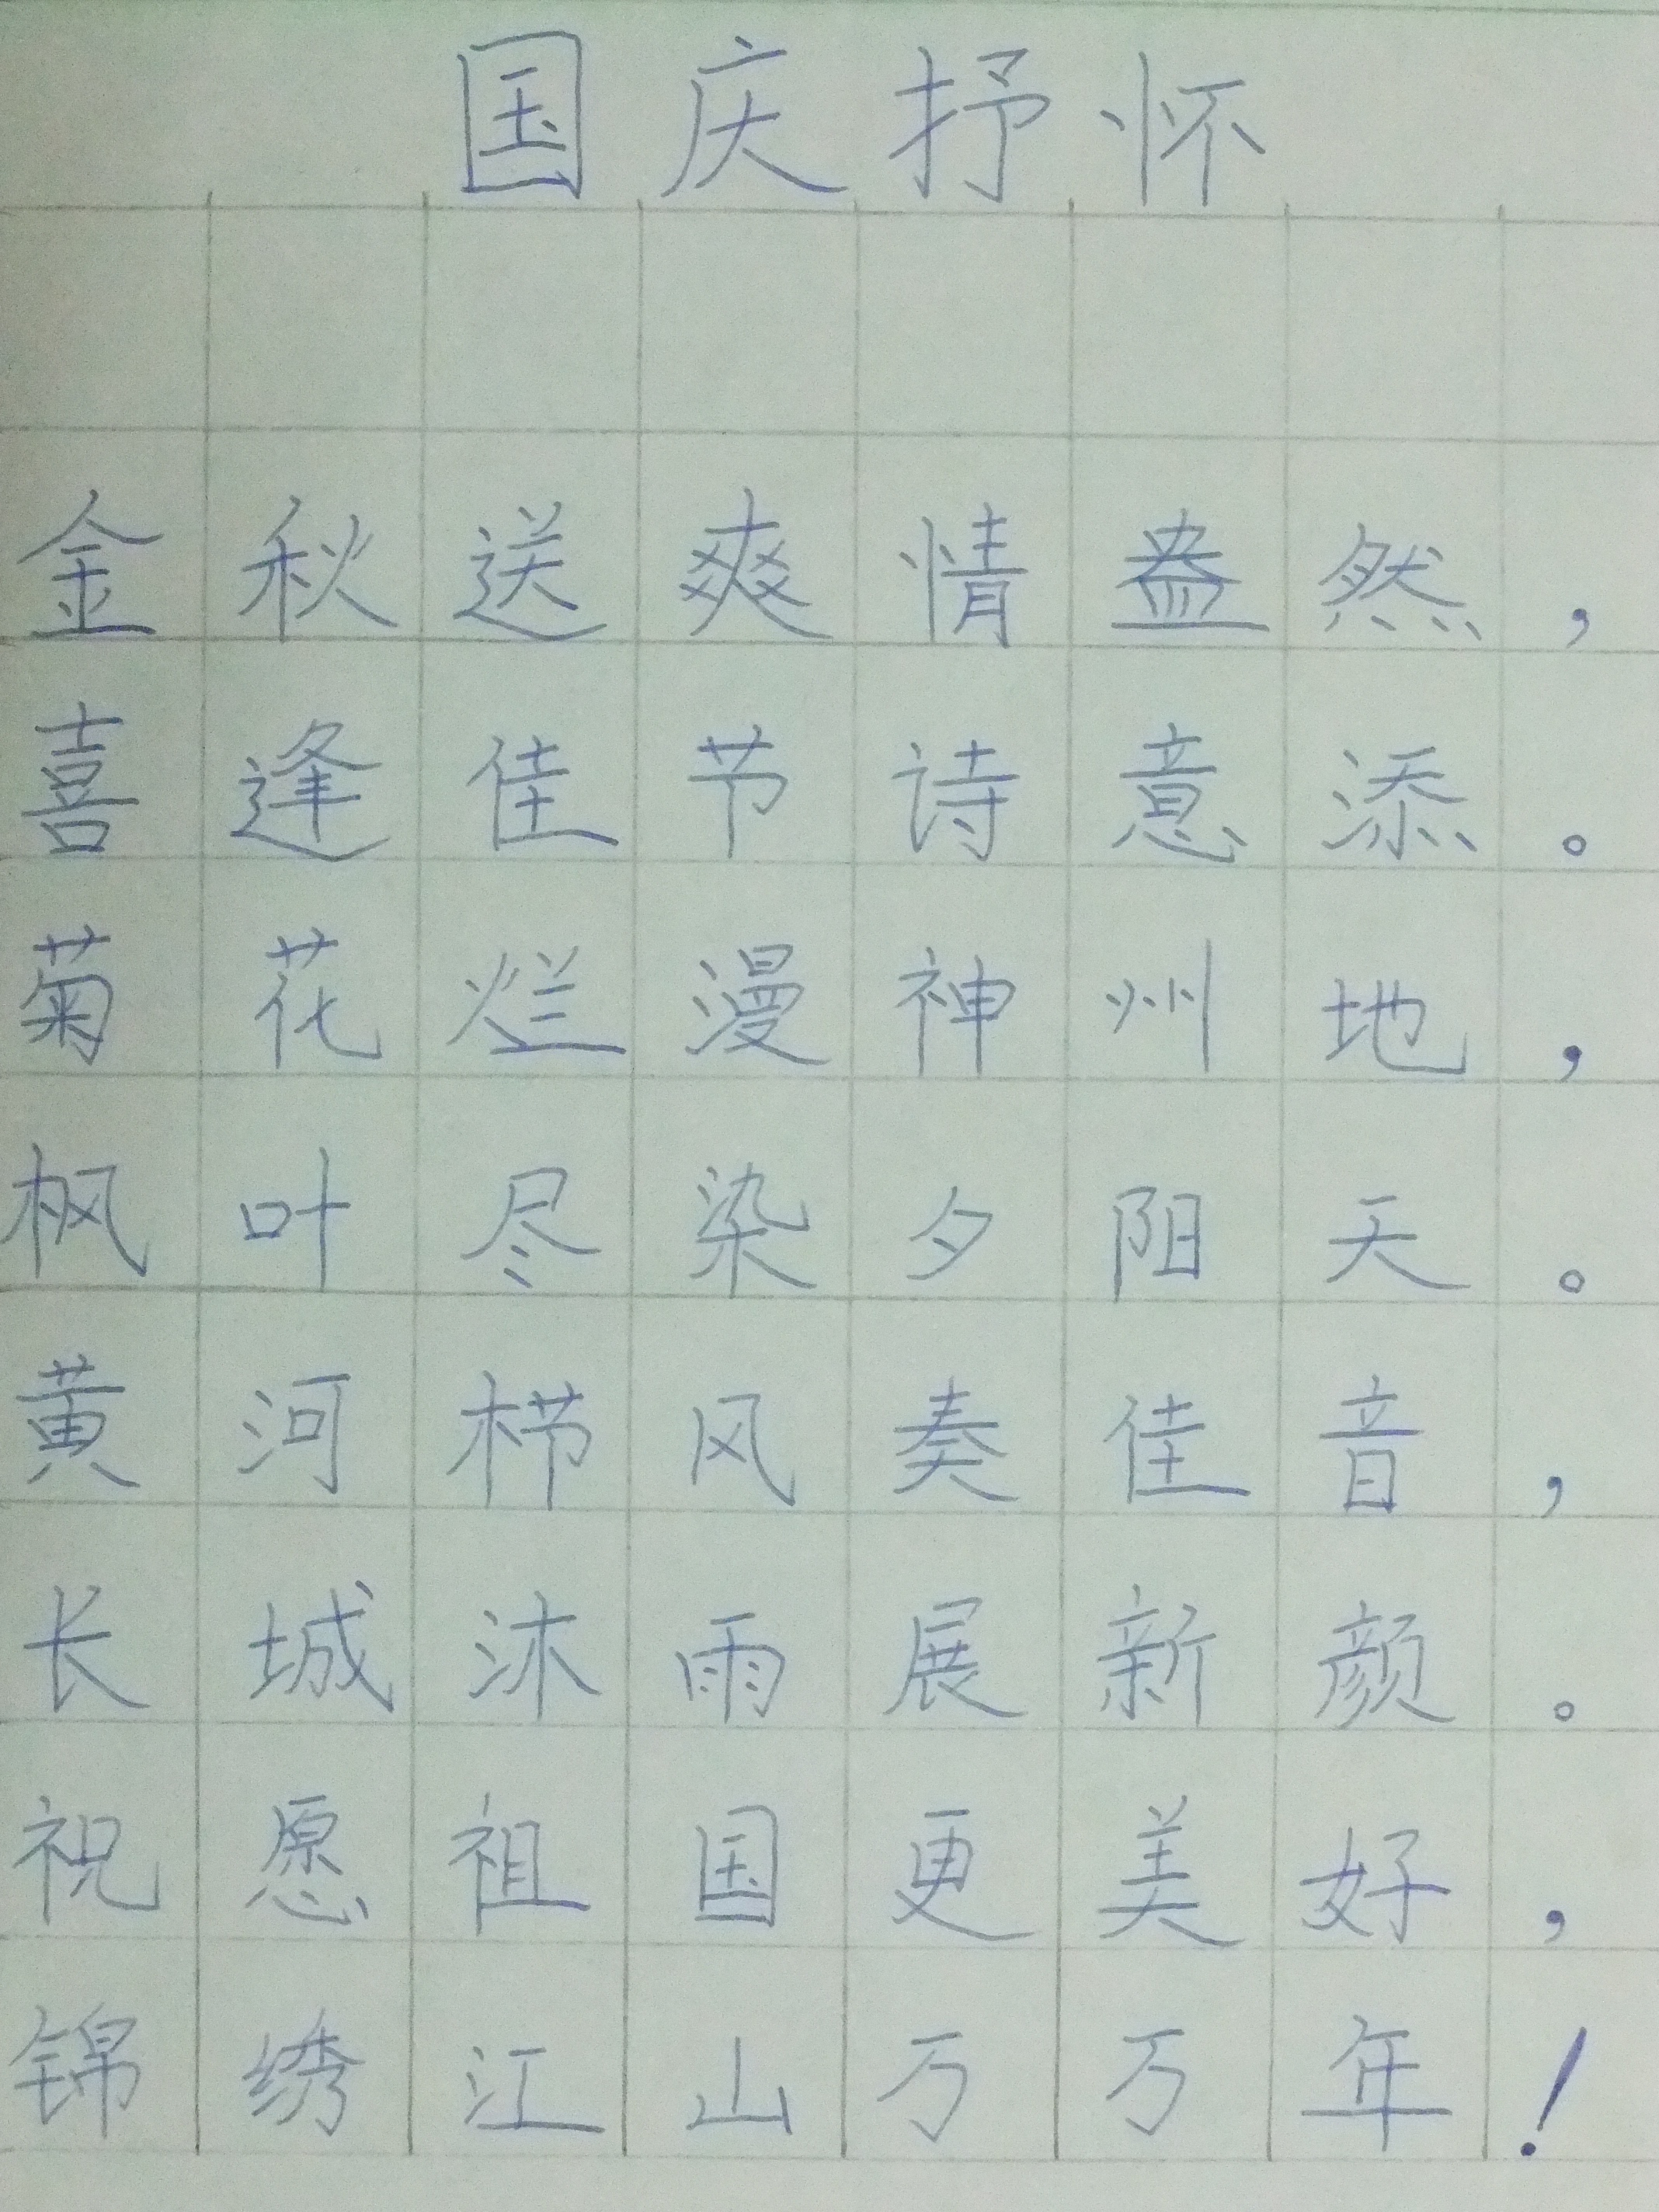 国庆抒怀
金秋送爽情盎然，
喜逢佳节诗意添。
菊花烂漫神州地，
枫叶尽染夕阳天。
黄河栉风奏佳音，
长城沐雨展新颜。
祝愿祖国更美好，
锦绣江山万万年！